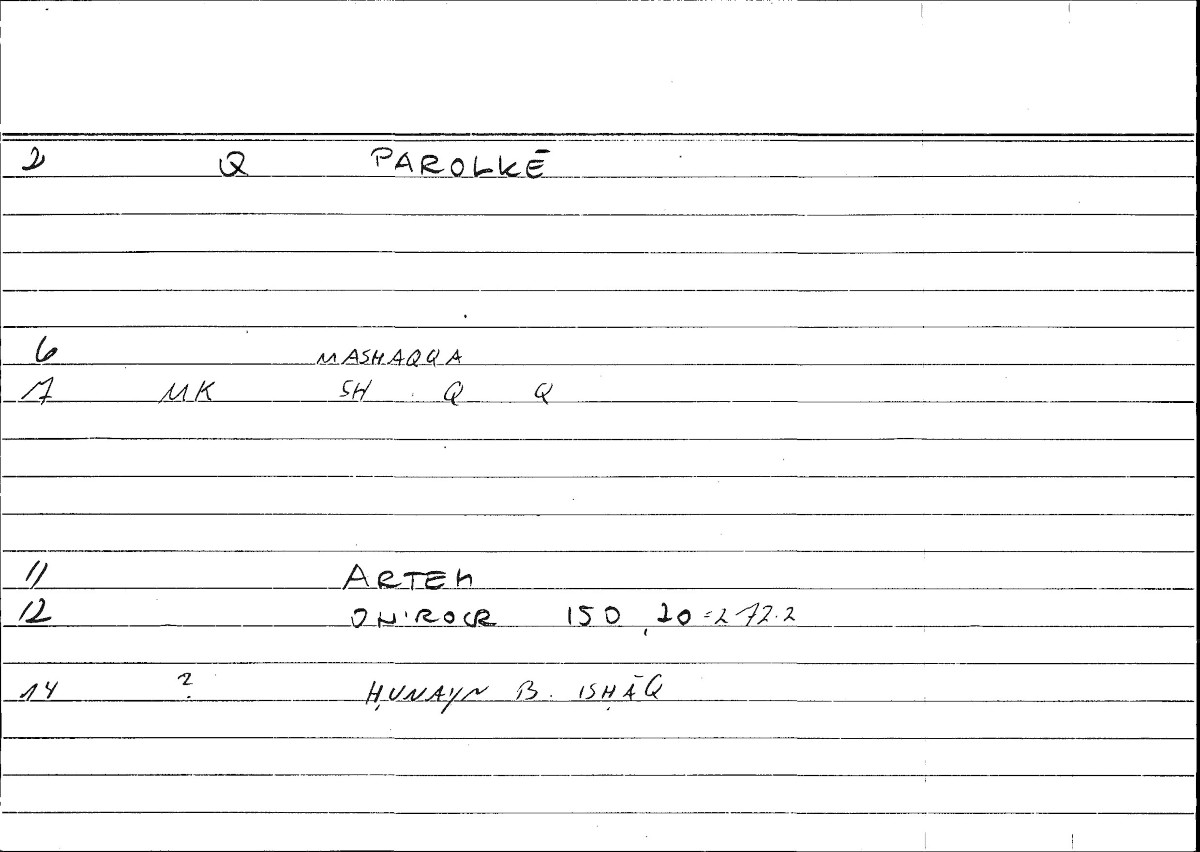 2 Q PAROLKĒ
6 MASHAQQA
7 MK SH Q Q
11 ARTEM
12 ONIROCR 150,20=272.2
14 ? ḤUNAYN B. ISḤĀQ